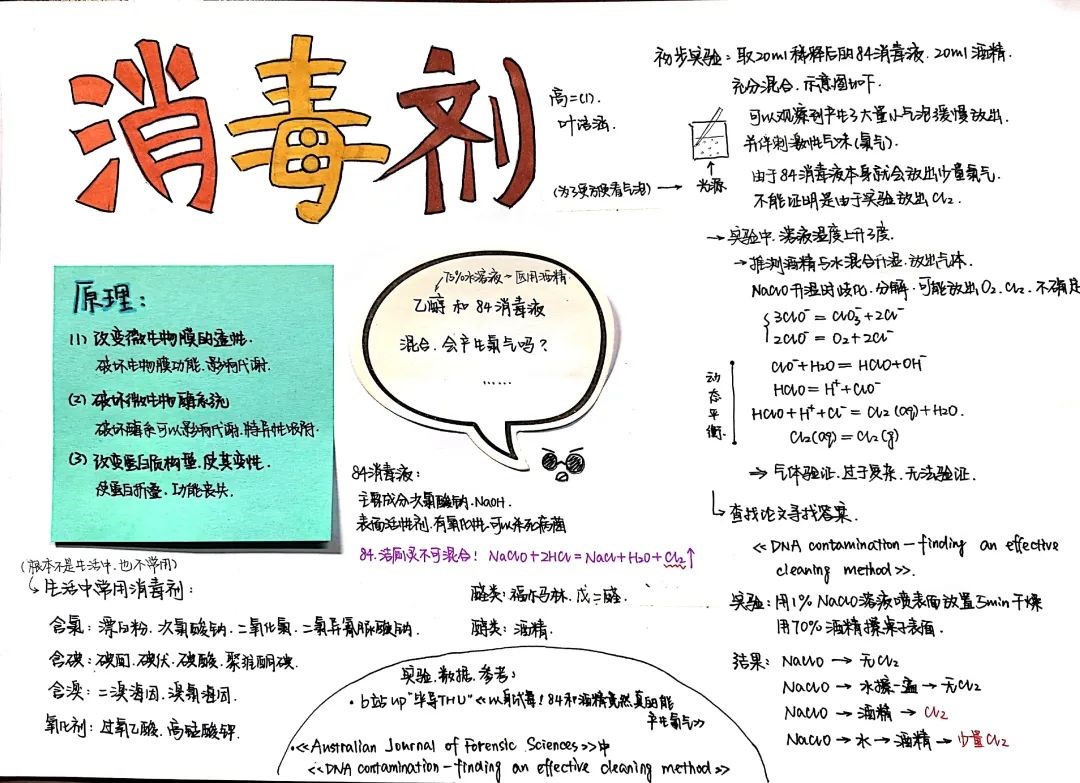 消毒剂
高二(1).
叶洁涵.
原理:
(1) 改变微生物膜的透性.
破坏生物膜功能.影响代谢.
(2) 破坏微生物酶系统
破坏酶系可以影响代谢.特异性吸附.
(3) 改变蛋白质构型.使其变性.
使蛋白折叠.功能丧失.
75%水溶液→医用酒精.
乙醇 和 84 消毒液
混合.会产生氯气吗?
……
84消毒液:
主要成分次氯酸钠.NaOH.
表面活性剂.有氧化性.可以杀死病菌
84.洁厕灵不可混合! NaClO+2HCl=NaCl+H₂O+Cl₂↑
(根本不是生活中.也不常用)
生活中常用消毒剂:
含氯: 漂白粉.次氯酸钠.二氧化氯.二氯异氰尿酸钠.
含碘: 碘酊.碘伏.碘酸.聚维酮碘.
含溴: 二溴海因.溴氯海因.
氧化剂: 过氧乙酸.高锰酸钾.
醛类: 福尔马林.戊二醛.
醇类: 酒精.
实验.数据.参考:
·b站up“毕导THU”《以身试毒!84和酒精竟然真的能
产生氯气》
·《Australian Journal of Forensic Sciences》中
《DNA contamination-finding an effective cleaning method》
初步实验: 取20ml稀释后的84消毒液.20ml酒精.
充分混合.示意图如下.
可以观察到产生了大量小气泡缓慢放出.
并伴刺激性气味(氯气).
(为了更方便看气泡) → 光源
由于84消毒液本身就会放出少量氯气.
不能证明是由于实验放出Cl₂.
→实验中.溶液温度上升3度.
→推测酒精与水混合升温.放出气体.
NaClO升温时歧化.分解.可能放出O₂.Cl₂.不确定
3ClO⁻=ClO₃⁻+2Cl⁻
2ClO⁻=O₂+2Cl⁻
动态平衡.
ClO⁻+H₂O=HClO+OH⁻
HClO=H⁺+ClO⁻
HClO+H⁺+Cl⁻=Cl₂(aq)+H₂O.
Cl₂(aq)=Cl₂(g)
→气体验证.过于复杂.无法验证.
查找论文寻找答案.
《DNA contamination-finding an effective
cleaning method》.
实验: 用1%NaClO溶液喷表面放置5min干燥
用70%酒精擦桌子表面.
结果: NaClO → 无Cl₂
NaClO → 水擦一遍 → 无Cl₂
NaClO → 酒精 → Cl₂
NaClO → 水 → 酒精 → 少量Cl₂